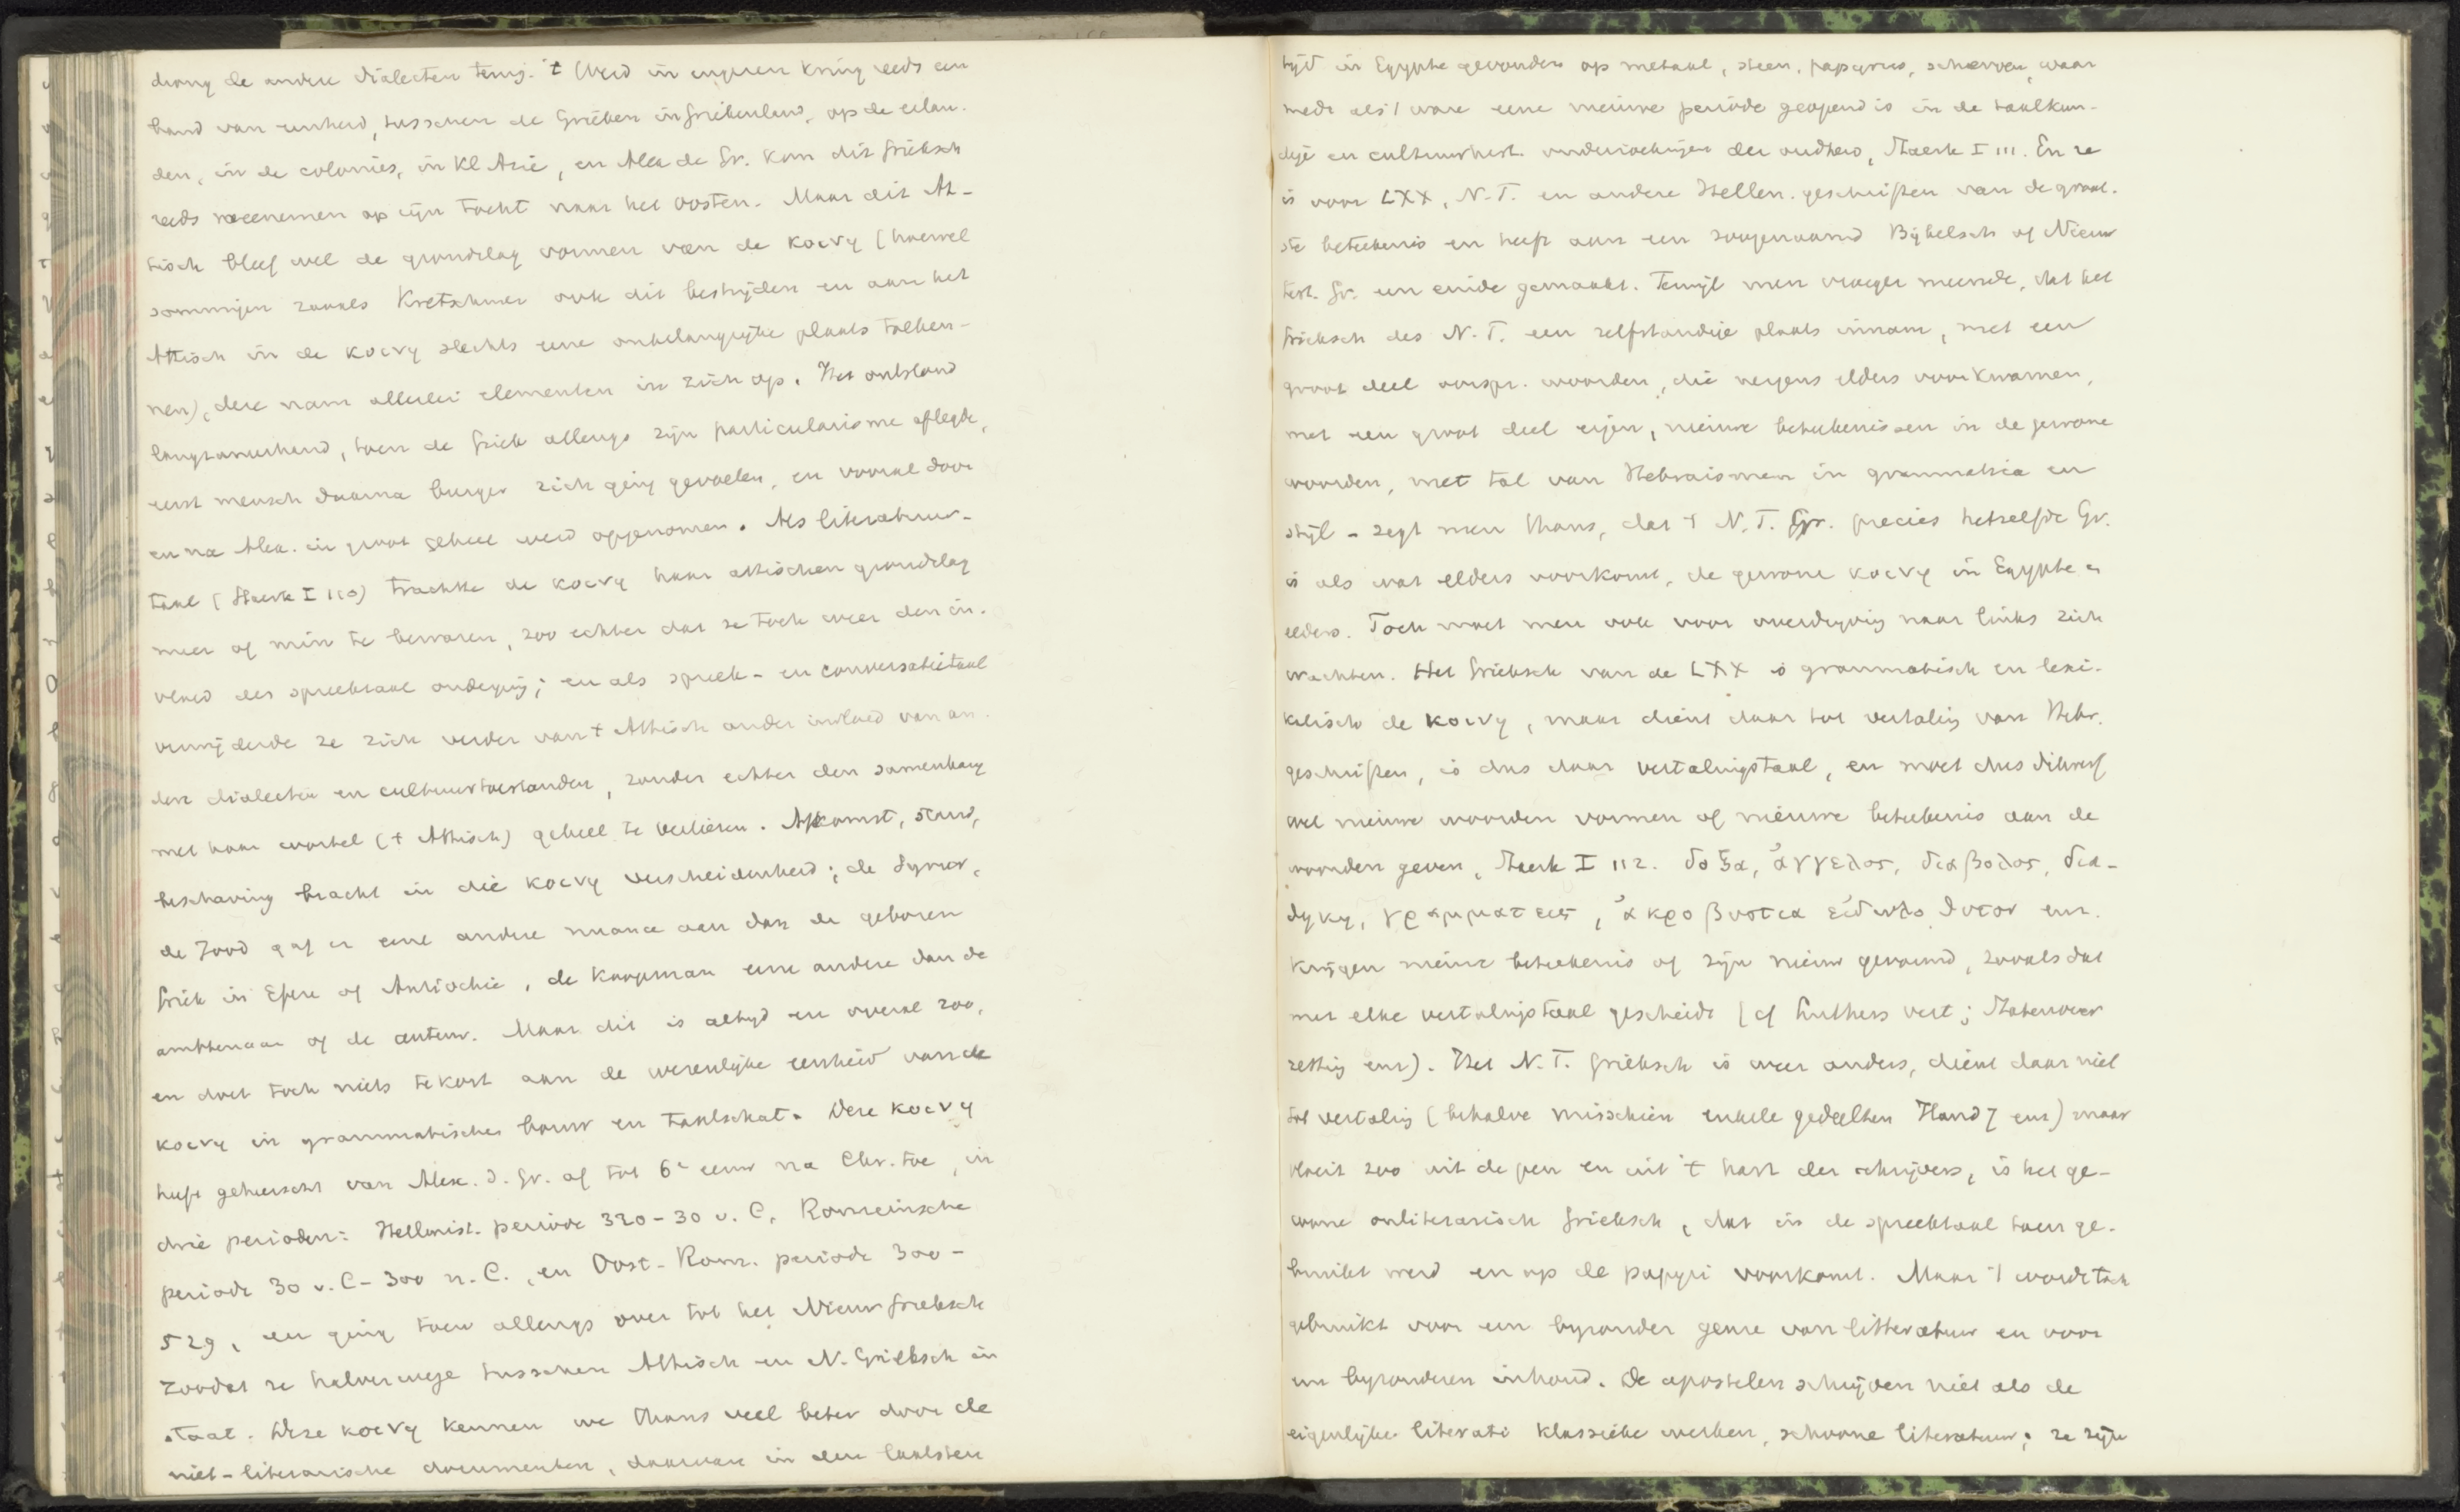 drong de andere dialecten terug. 't Werd in engeren kring reeds een
band van eenheid, tusschen de Grieken in Griekenland, op de eilan-
den, in de colonies, in Kl Azië, en Alex de Gr. kon dit Grieksch
reeds meenemen op zijn tocht naar het Oosten. Maar dit At-
tisch bleef wel de grondslag vormen van de κοινη (hoewel
sommigen zooals Kretschmer ook dit bestrijden en aan het
Attisch in de κοινη slechts eene onbelangrijke plaats toeken-
nen), deze nam allerlei elementen in zich op. Het ontstond
langzamerhand, toen de Griek allengs zijn particularisme aflegde,
eerst mensch daarna burger zich ging gevoelen, en vooral door
en na Alex. in groot geheel werd opgenomen. Als literatuur-
taal (Staerk I 110) trachtte de κοινη haar attischen grondslag
meer of min te bewaren, zoo echter dat ze toch weer den in-
vloed der spreektaal onderging; en als spreek- en conversatietaal
verwijderde ze zich verder van 't Attisch onder invloed van an-
dere dialecten en cultuurtoestanden, zonder echter den samenhang
met haar wortel ('t Attisch) geheel te verliezen. Afkomst, stand,
beschaving bracht in die κοινη verscheidenheid; de Syrier,
de Jood gaf er eene andere nuance aan dan de geboren
Griek in Efeze of Antiochie, de koopman eene andere dan de
ambtenaar of de auteur. Maar dit is altijd en overal zoo,
en doet toch niets tekort aan de wezenlijke eenheid van de
κοινη in grammatischen bouw en taalschat. Deze κοινη
heeft geheerscht van Alex. d. Gr. af tot 6e eeuw na Chr. toe, in
drie perioden: Hellenist. periode 320-30 v. C, Romeinsche
periode 30 v. C - 300 n. C., en Oost-Rom. periode 300-
529, en ging toen allengs over tot het Nieuw Grieksch
zoodat ze halverwege tusschen Attisch en N. Grieksch in
staat. Deze κοινη kennen we thans veel beter door de
niet-literarische documenten, daarvan in den laatsten
tijd in Egypte gevonden op metaal, steen, papyrus, scherven, waar
mede als 't ware eene nieuwe periode geopend is in de taalkun-
dige en cultuurhist. onderzoekingen der oudheid, Staerk I 111. En ze
is voor LXX, N.T. en andere Hellen. geschriften van de groot-
ste beteekenis en heeft aan een zoogenaamd Bijbelsch of Nieuw
test. Gr. een einde gemaakt. Terwijl men vroeger meende, dat het
Grieksch des N.T. een zelfstandige plaats innam, met een
groot deel oorspr. woorden, die nergens elders voorkwamen,
met een groot deel eigen, nieuwe beteekenissen in de gewone
woorden, met tal van Hebraismen in grammatica en
stijl - zegt men thans, dat 't N.T. Gr. precies hetzelfde Gr.
is als wat elders voorkomt, de gewone κοινη in Egypte en
elders. Toch moet men ook voor overdrijving naar links zich
wachten. Het Grieksch van de LXX is grammatisch en lexi-
kalisch de κοινη, maar dient daar tot vertaling van Hebr.
geschriften, is dus daar vertalingstaal, en moet dus dikwerf
wel nieuwe woorden vormen of nieuwe beteekenis aan de
woorden geven, Staerk I 112. δοξα, ἀγγελος, διαβολος, δια-
θηκη, γραμματευς, ἀκροβυστια εἰδωλοθυτον enz.
krijgen nieuwe beteekenis of zijn nieuw gevormd, zooals dat
met elke vertalingstaal geschiedt (cf Luthers vert; Statenover
zetting enz). Het N.T. Grieksch is weer anders, dient daar niet
tot vertaling (behalve misschien enkele gedeelten Hand 7 enz) maar
vloeit zoo uit de pen en uit 't hart der schrijvers, is het ge-
wone onliterarisch Grieksch, dat in de spreektaal toen ge-
bruikt werd en op de papyri voorkomt. Maar 't wordt toch
gebruikt voor een byzonder genre van litteratuur en voor
een byzonderen inhoud. De apostelen schrijven niet als de
eigenlijke literati klassieke werken, schoone literatuur; ze zijn